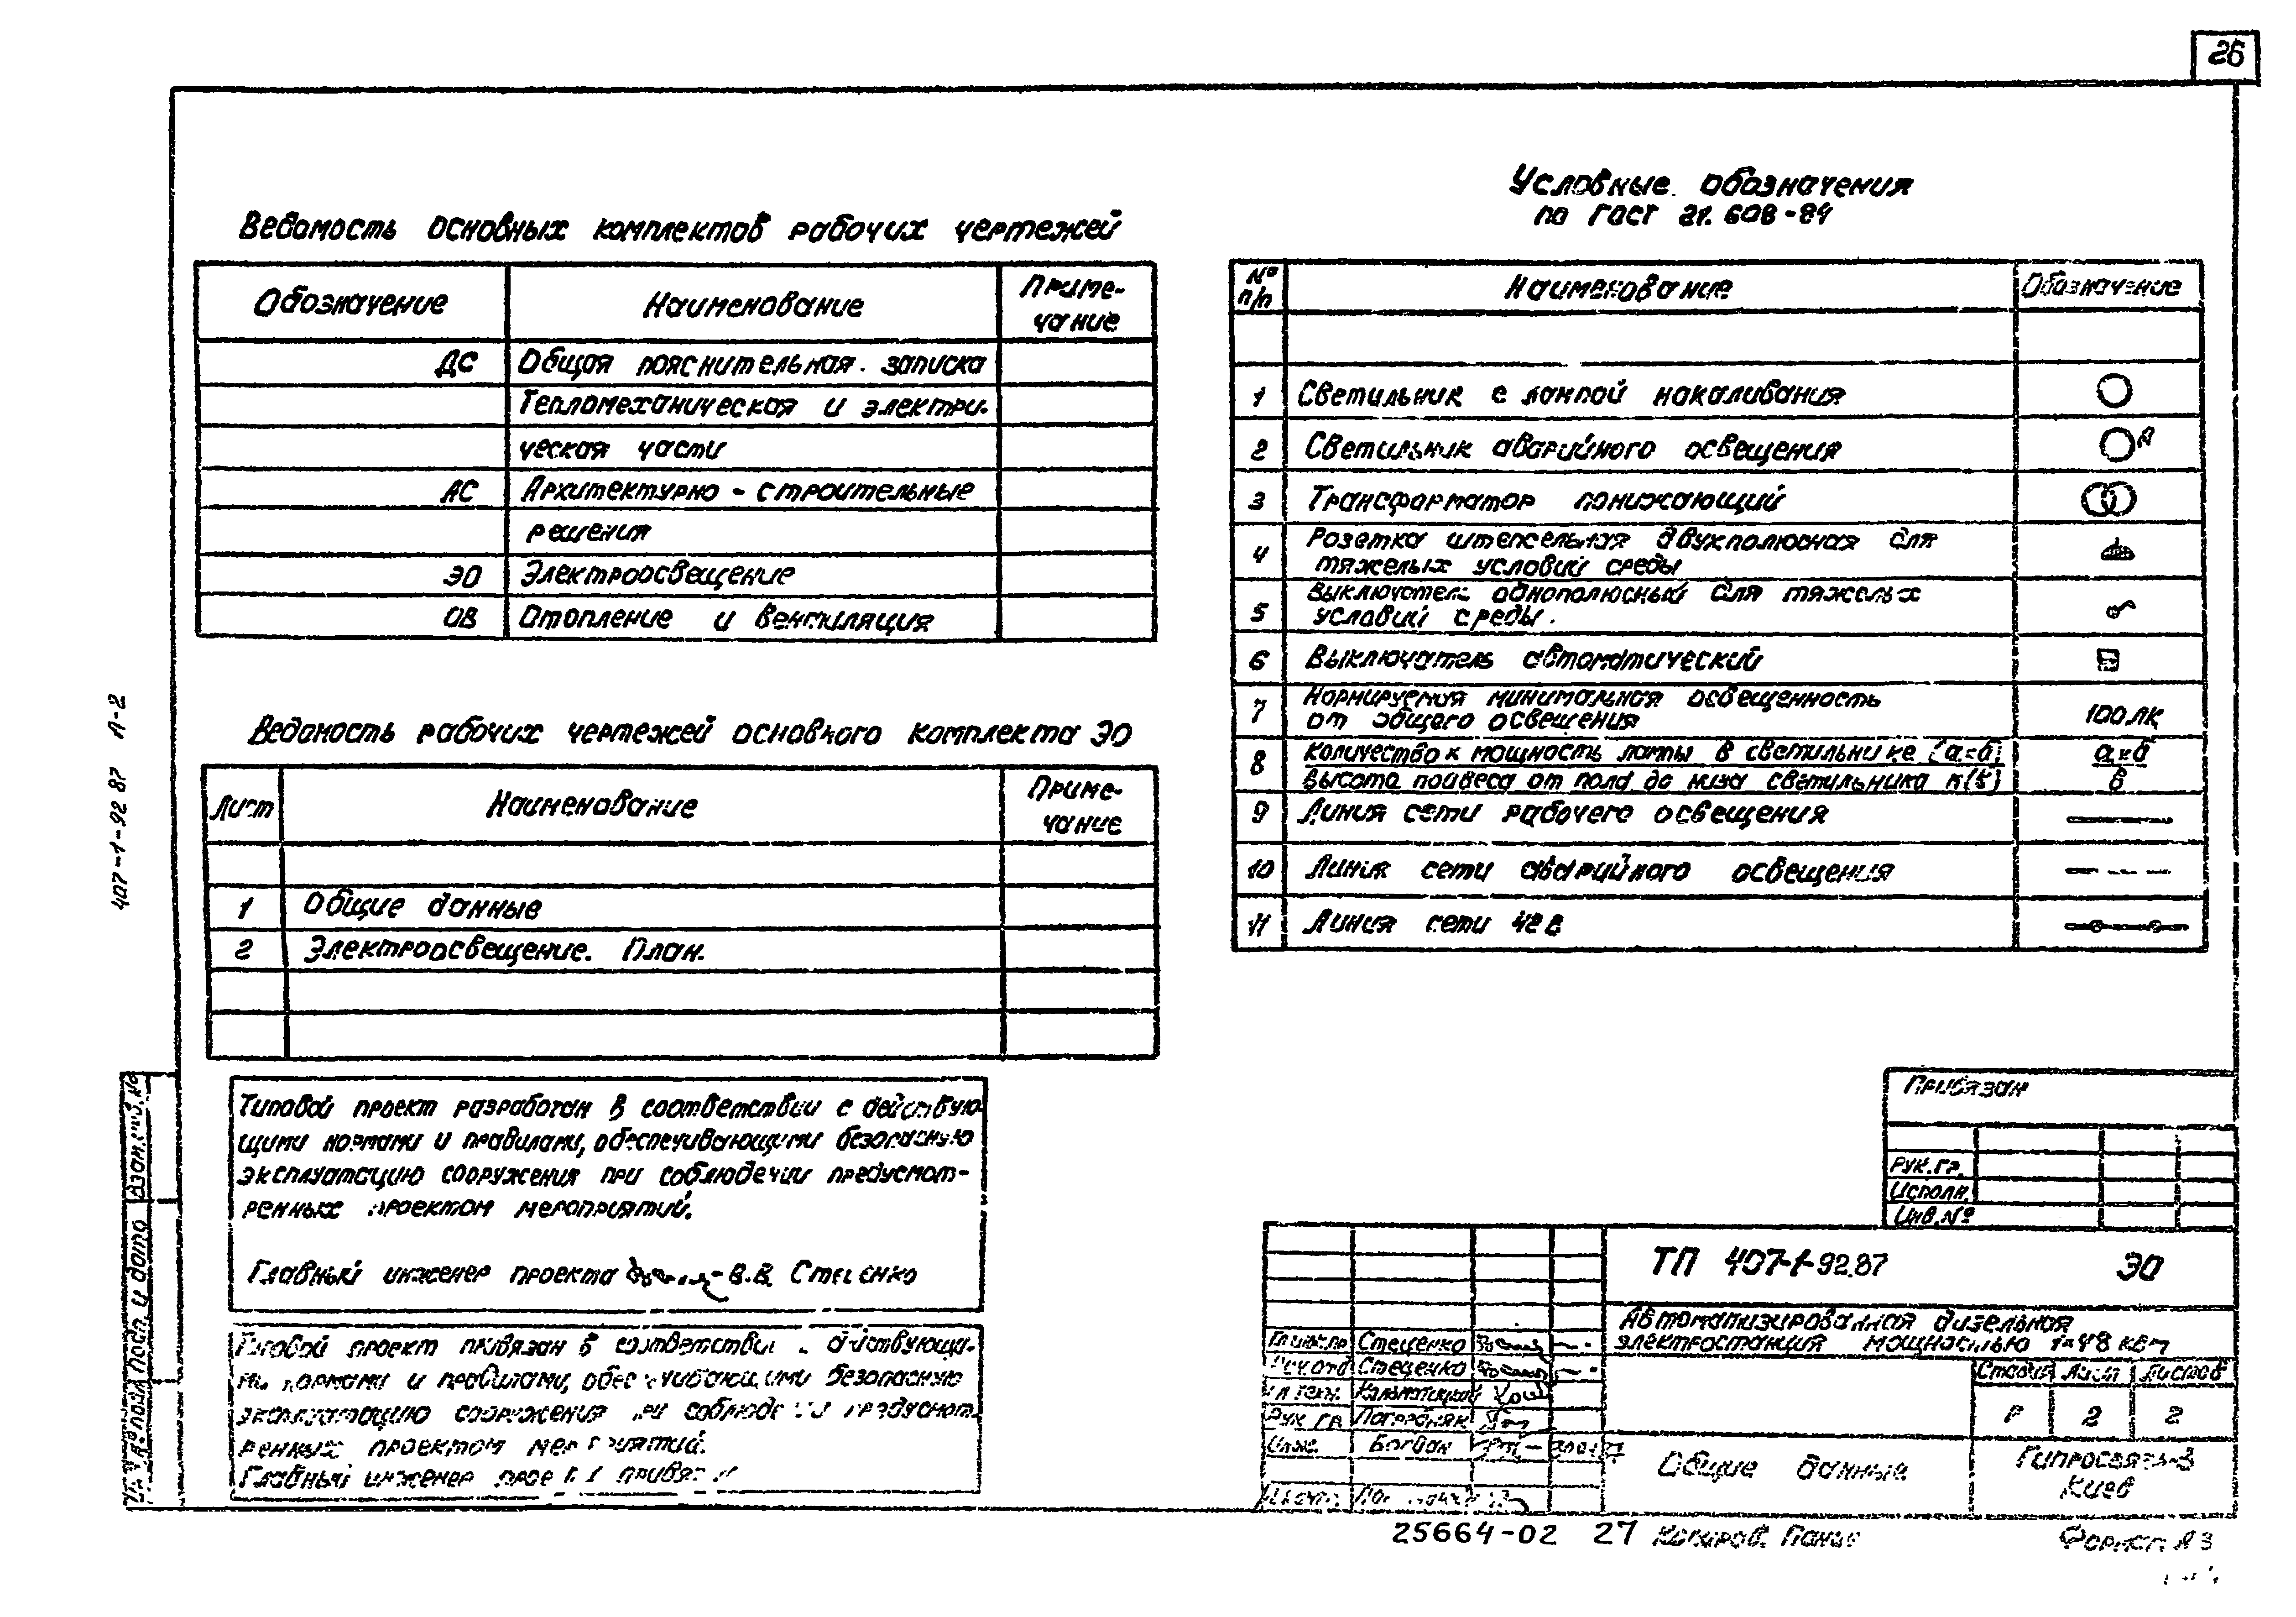 26
Ведомость основных комплектов рабочих чертежей
Обозначение Наименование Приме-
чание
ДС Общая пояснительная записка
Тепломеханическая и электри-
ческая части
АС Архитектурно - строительные
решения
ЭО Электроосвещение
ОВ Отопление и вентиляция
Ведомость рабочих чертежей основного комплекта ЭО
Лист Наименование Приме-
чание
1 Общие данные
2 Электроосвещение. План.
Типовой проект разработан в соответствии с действую-
щими нормами и правилами, обеспечивающими безопасную
эксплуатацию сооружения при соблюдении предусмот-
ренных проектом мероприятий.
Главный инженер проекта В.В. Стеценко
Типовой проект привязан в соответствии действующи-
ми нормами и правилами, обеспечивающими безопасную
эксплуатацию сооружения при соблюдении предусмот-
ренных проектом мероприятий.
Главный инженер
Условные обозначения
по ГОСТ 21.608-84
№ п/п Наименование Обозначение
1 Светильник с лампой накаливания
2 Светильник аварийного освещения А
3 Трансформатор понижающий
4 Розетка штепсельная двухполюсная для
тяжелых условий среды
5 Выключатель однополюсный для тяжелых
условий среды.
6 Выключатель автоматический
7 Нормируемая минимальная освещенность
от общего освещения 100 лк
8 Количество х мощность лампы в светильнике (а×б) а×б
Высота подвеса от пола до низа светильника в
9 Линия сети рабочего освещения
10 Линия сети аварийного освещения
11 Линия сети 42 В
407-1-92 87 А-2
Взам.инв.№
Подп. и дата
Привязан
Рук.гр.
Исполн.
Инв.№
ТП 407-1-92.87 ЭО
Автоматизированная дизельная
электростанция мощностью 1×48 квт
Стеценко
Стеценко
Рук. гр.
Инж. Богдан
Стадия Лист Листов
Р 2 2
Общие данные
Гипросвязь-3
Киев
25664-02 27 Копиров.
Формат А3